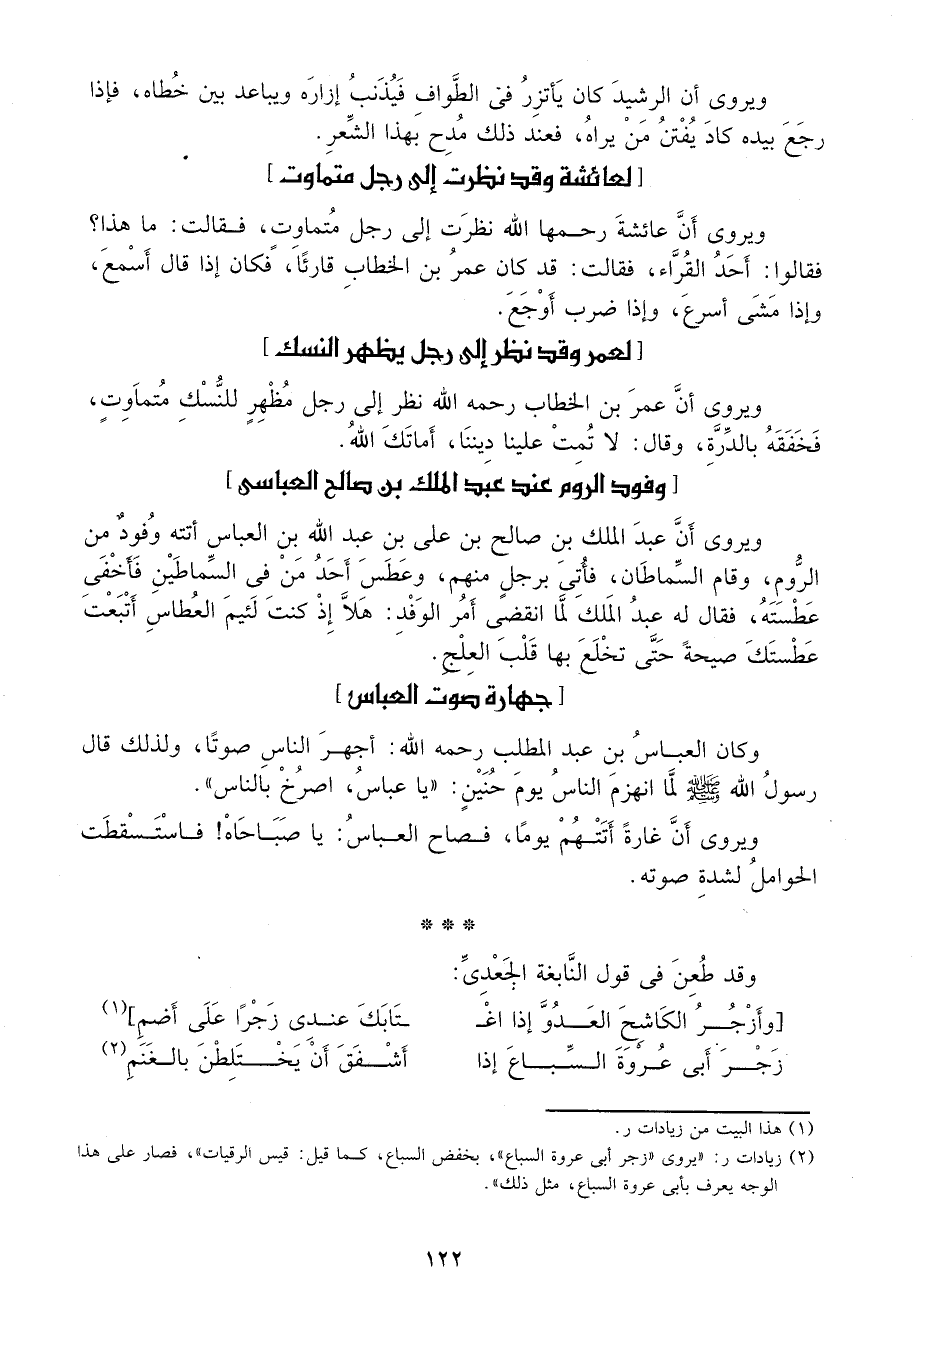 ويروى أن الرشيدَ كان يَأتزِرُ فى الطَّوافِ فَيُذَنبُ إزارَه ويباعد بين خُطاه، فإذا
رجَعَ بيده كادَ يُفْتنُ مَنْ يراهُ، فعند ذلك مُدِح بهذا الشِّعرِ.
[لعائشة وقد نظرت إلى رجل متماوت]
ويروى أنَّ عائشةَ رحمها الله نظرَت إلى رجل مُتماوِت، فقالت: ما هذا؟
فقالوا: أحَدُ القُرَّاء، فقالت: قد كان عمرُ بن الخطاب قارئًا، فكان إذا قال أسْمعَ،
وإذا مَشَى أسرعَ، وإذا ضرب أوْجَعَ.
[لعمر وقد نظر إلى رجل يظهر النسك]
ويروى أنَّ عمرَ بن الخطاب رحمه الله نظر إلى رجل مُظْهِرٍ للنُّسْكِ مُتماوِتٍ،
فَخَفَقَهُ بالدِّرَّة، وقال: لا تُمِتْ علينا ديننَا، أماتَكَ اللهُ.
[وفود الروم عند عبد الملك بن صالح العباسى]
ويروى أنَّ عبدَ الملك بن صالح بن على بن عبد الله بن العباس أتته وُفودٌ من
الرُّوم، وقام السِّماطان، فأُتِىَ برجلٍ منهم، وعَطَسَ أحَدُ مَنْ فى السِّماطَيْنِ فَأخْفَى
عَطْسَتَهُ، فقال له عبدُ المَلك لمَّا انقضى أمْرُ الوَفْد: هَلاَّ إذْ كنتَ لَئيمَ العُطاسِ أتْبَعْتَ
عَطْستَكَ صيحةً حَتَّى تخْلَعَ بها قَلْبَ العِلْجِ.
[جهارة صوت العباس]
وكان العباسُ بن عبد المطلب رحمه الله: أجهرَ الناسِ صوتًا، ولذلك قال
رسولُ الله ﷺ لمَّا انهزمَ الناسُ يومَ حُنَيْنٍ: «يا عباسُ، اصرُخْ بالناس».
ويروى أنَّ غارةً أتَتْهُمْ يومًا، فصاح العباسُ: يا صبَاحَاهْ! فاستَسْقطَت
الحواملُ لشدةِ صوته.
* * *
وقد طُعِنَ فى قول النَّابغة الجَعْدِىِّ:
[وأزْجُرُ الكاشِحَ العَدُوَّ إذا اغـ ـتَابَكَ عندِى زَجْرًا عَلَى أضَمِ](١)
زَجْرَ أبى عُرْوَةَ السِّباعَ إذا أشْفَقَ أنْ يَخْتَلِطْنَ بالغَنَمِ(٢)
(١) هذا البيت من زيادات ر.
(٢) زيادات ر: «يروى «زجر أبى عروة السباع»، بخفض السباع، كما قيل: قيس الرقيات»، فصار على هذا
الوجه يعرف بأبى عروة السباع، مثل ذلك».
١٢٢